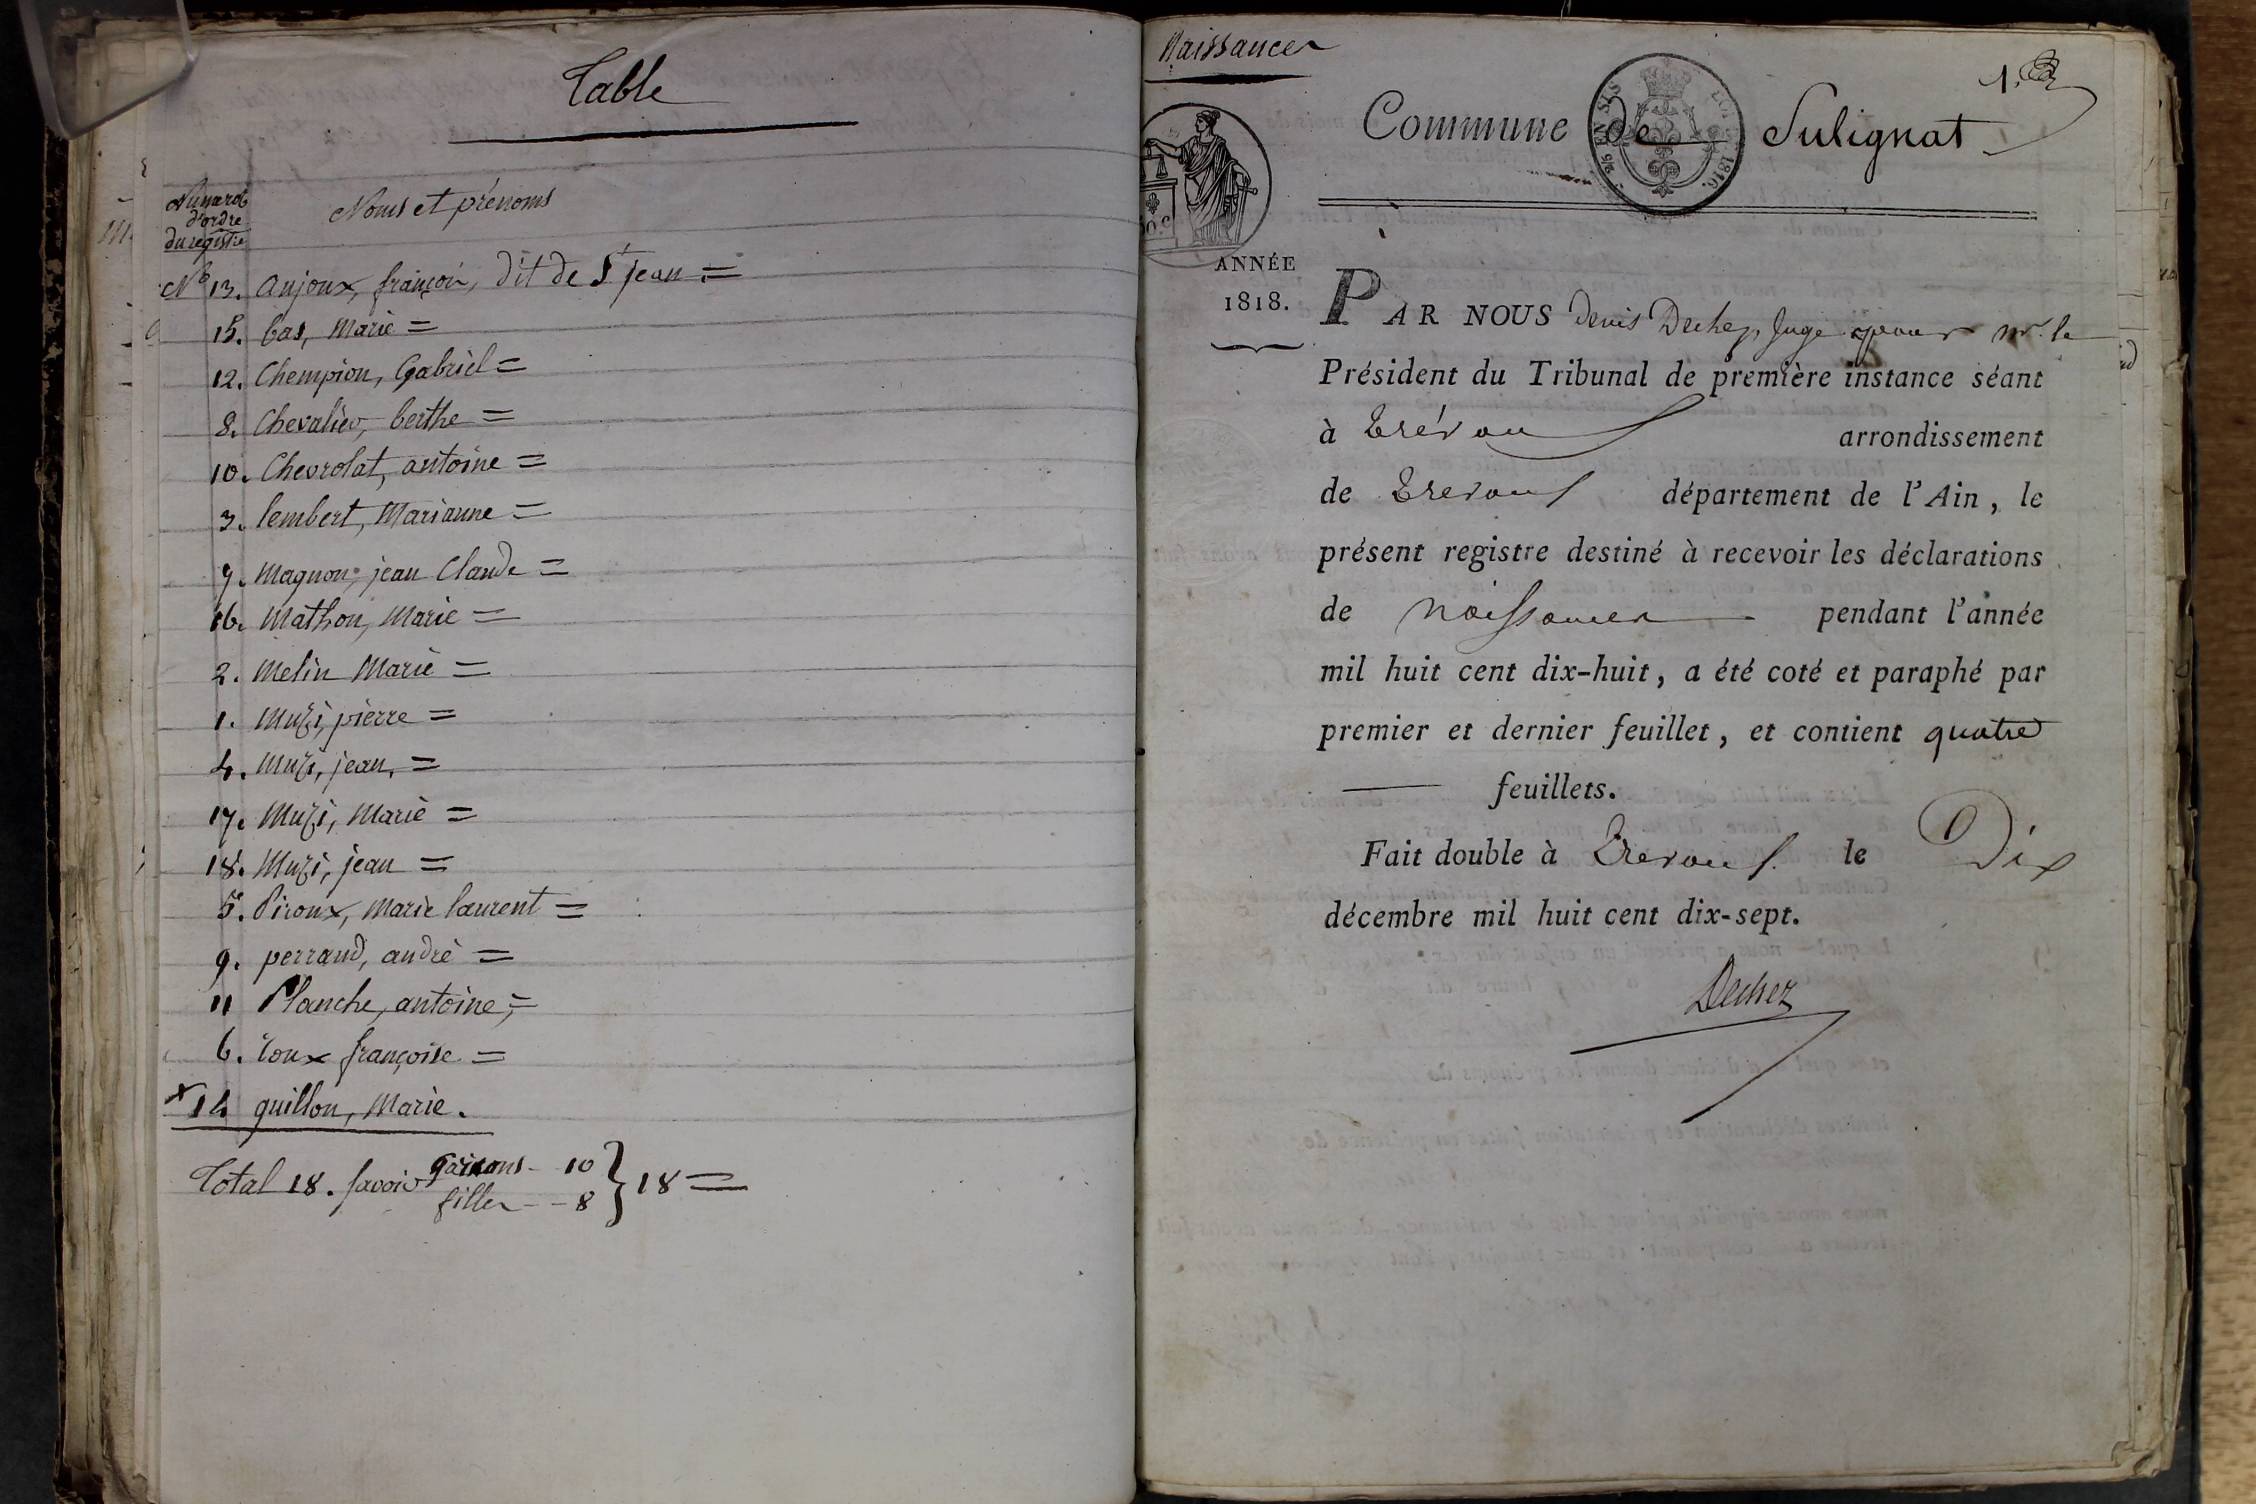 Table
Numérot
d'ordre
du registre
Noms et prénoms
N° 13. Anjoux, françois, dit de St jean =
15. bas, Marie =
12. Chempion, Gabriel =
8. Chevalier, berthe =
10. Chevrolat, antoine =
3. lembert, Marianne =
7. Magnon, jean Claude =
16. Mathon, Marie =
2. Melin Marie =
1. Muzi, pierre =
4. Muzi, jean, =
17. Muzi, Marie =
18. Muzi, jean =
5. Piroux, Marie laurent =
9. perraud, andré =
11 Planche, antoine, =
6. roux françoise =
x 14 quillon, Marie.
Total 18. savoir garçons - 10
filles - - 8 } 18 =
Naissances
1.
Commune de Sulignat
ANNÉE
1818.
PAR NOUS Denis Dechez, Juge pour mr. le
Président du Tribunal de première instance séant
à Trévoux arrondissement
de Trevoux département de l'Ain, le
présent registre destiné à recevoir les déclarations
de Naissances pendant l'année
mil huit cent dix-huit, a été coté et paraphé par
premier et dernier feuillet, et contient quatre
— feuillets.
Fait double à Trevoux. le Dix
décembre mil huit cent dix-sept.
Dechez